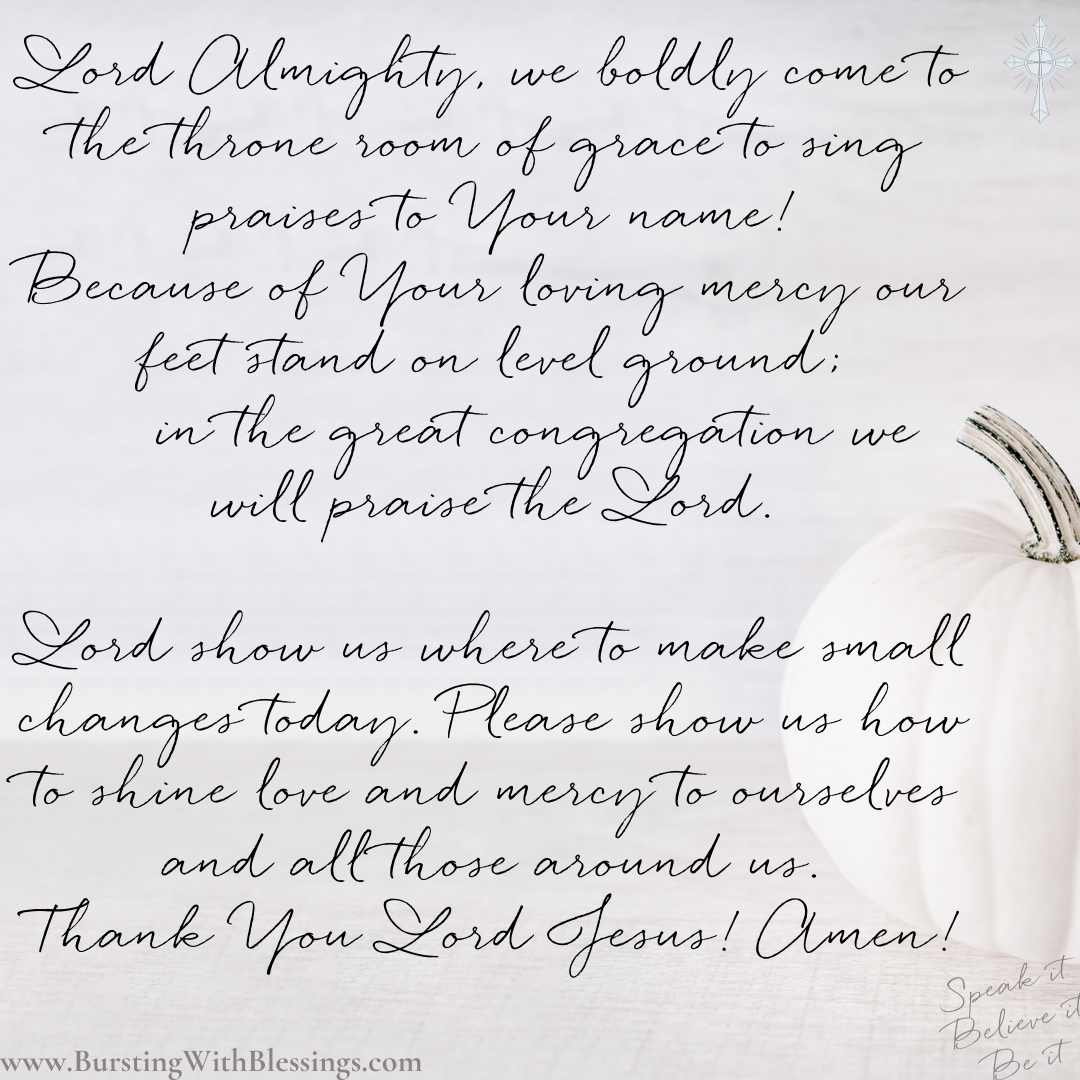 Lord Almighty, we boldly come to
the throne room of grace to sing
praises to Your name!
Because of Your loving mercy our
feet stand on level ground;
in the great congregation we
will praise the Lord.
Lord show us where to make small
changes today. Please show us how
to shine love and mercy to ourselves
and all those around us.
Thank You Lord Jesus! Amen!
Speak it
Believe it
Be it
www.BurstingWithBlessings.com